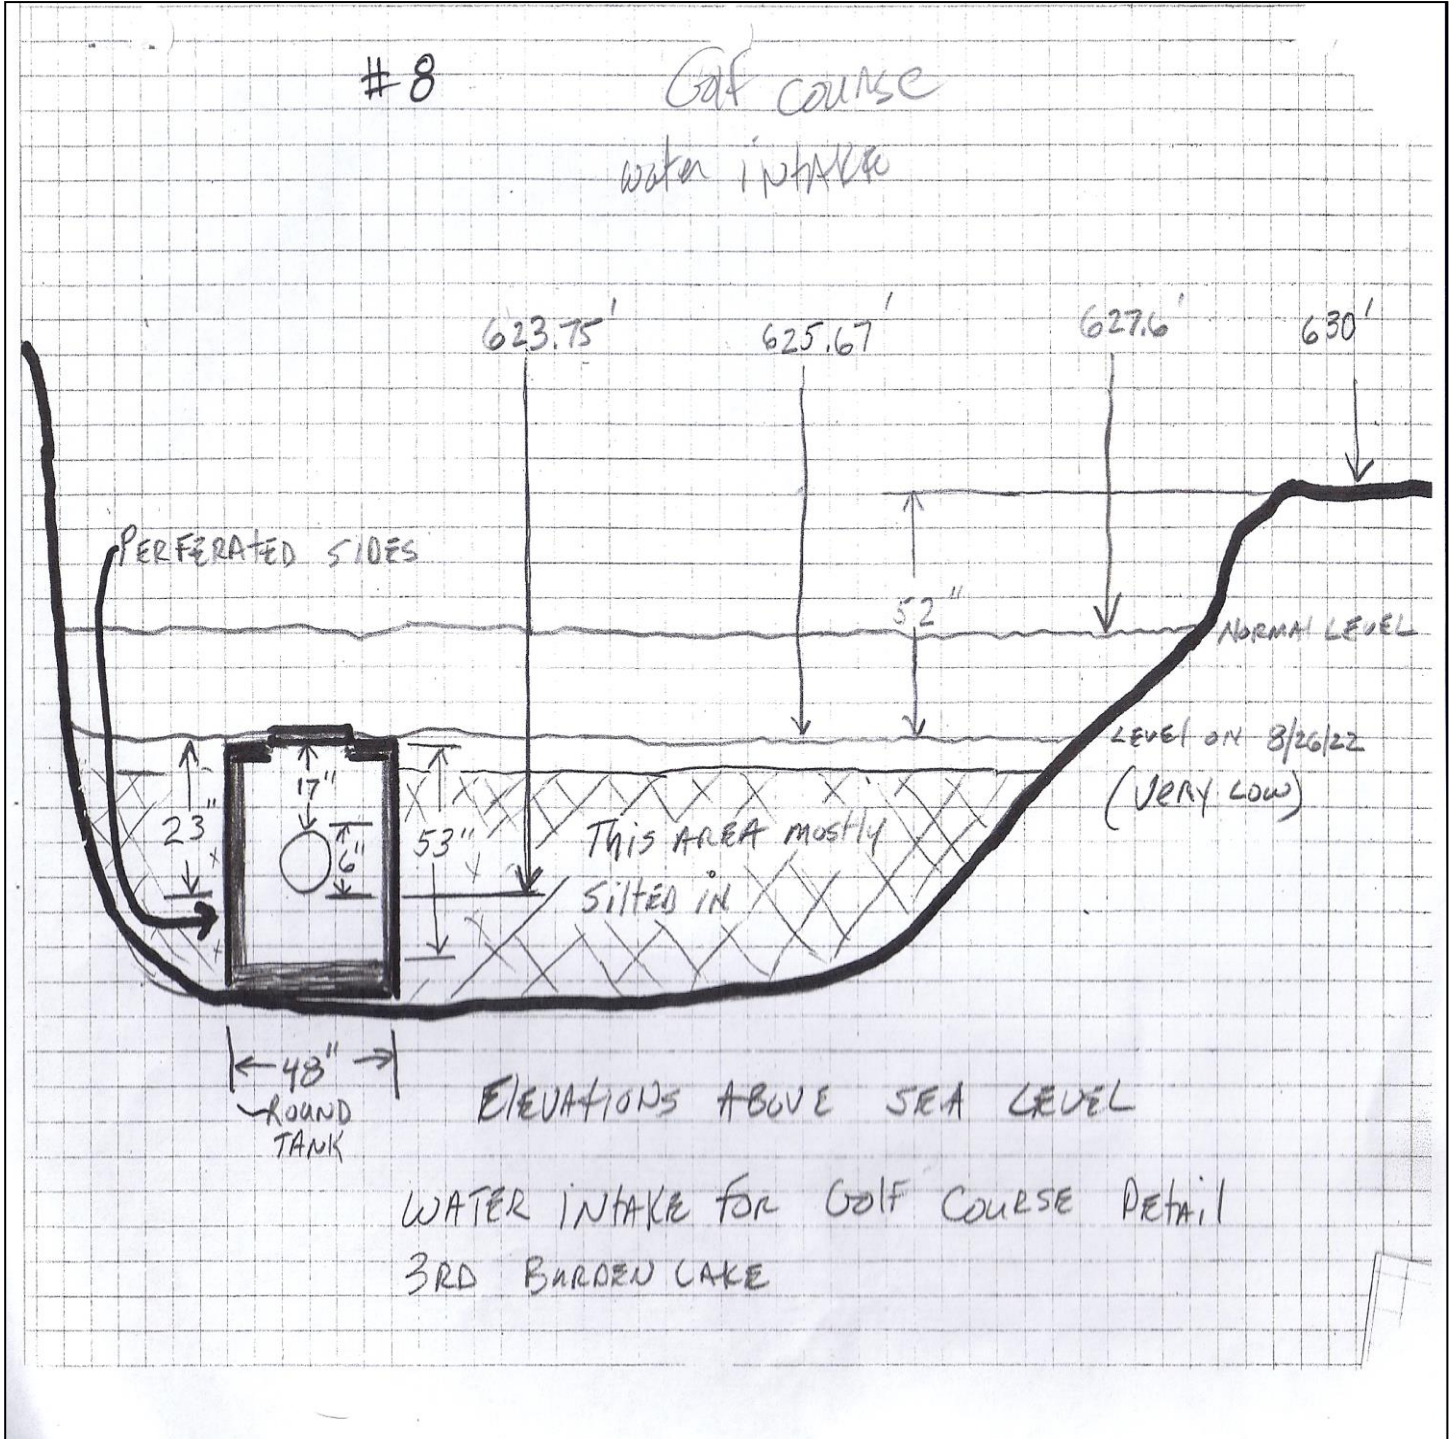 #8
Golf course
water intake
623.75'
625.67'
627.6'
630'
PERFERATED SIDES
52"
NORMAL LEVEL
LEVEL ON 8/26/22
(VERY LOW)
17"
23"
6"
53"
This AREA mostly
SiltED iN
48"
ROUND
TANK
ElEVAtiONS ABOVE SEA LEVEL
WATER iNtAKE FOR GOlF COURSE DEtAil
3RD BURDEN LAKE